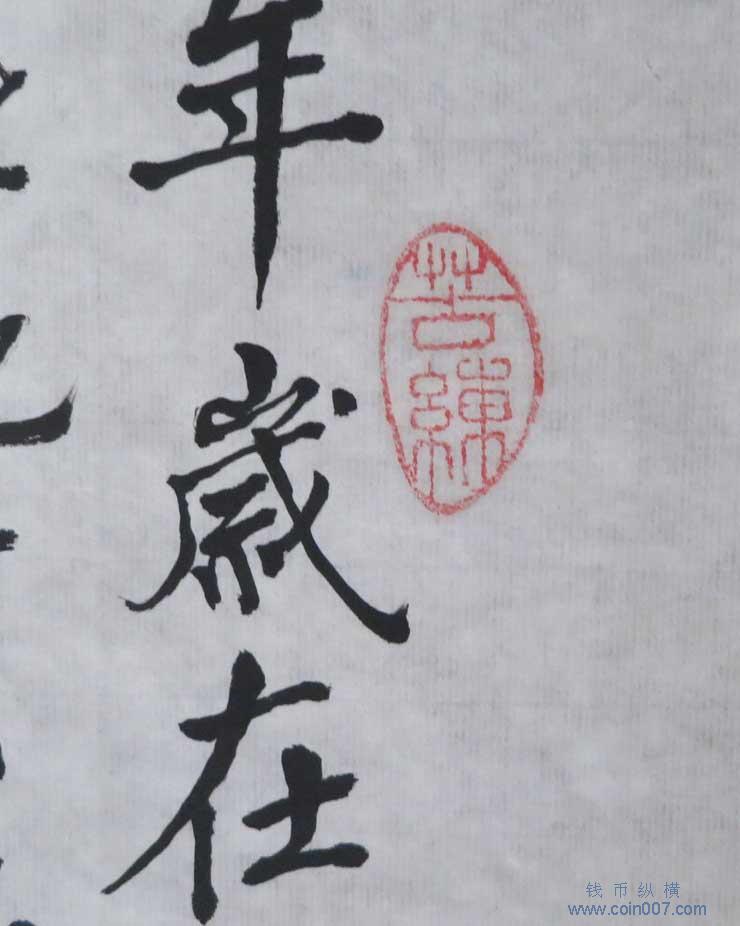 年歲在
苦練
钱币纵横
www.coin007.com